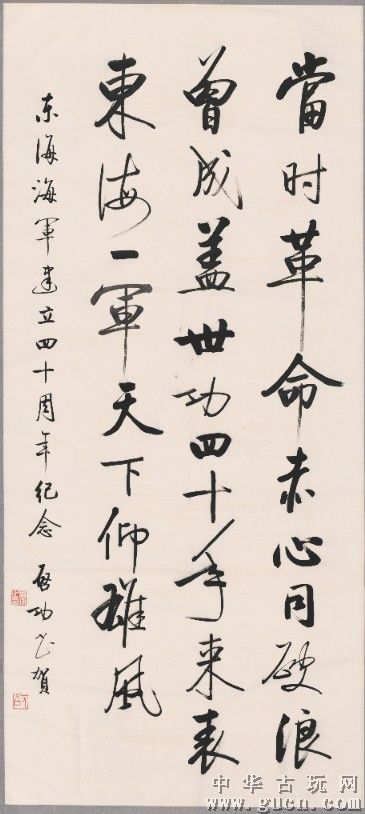 當时革命赤心同破浪
曾成盖世功四十年来表
東海一軍天下仰雄風
东海海軍建立四十周年纪念 启功书賀
中华古玩网
www.gucn.com